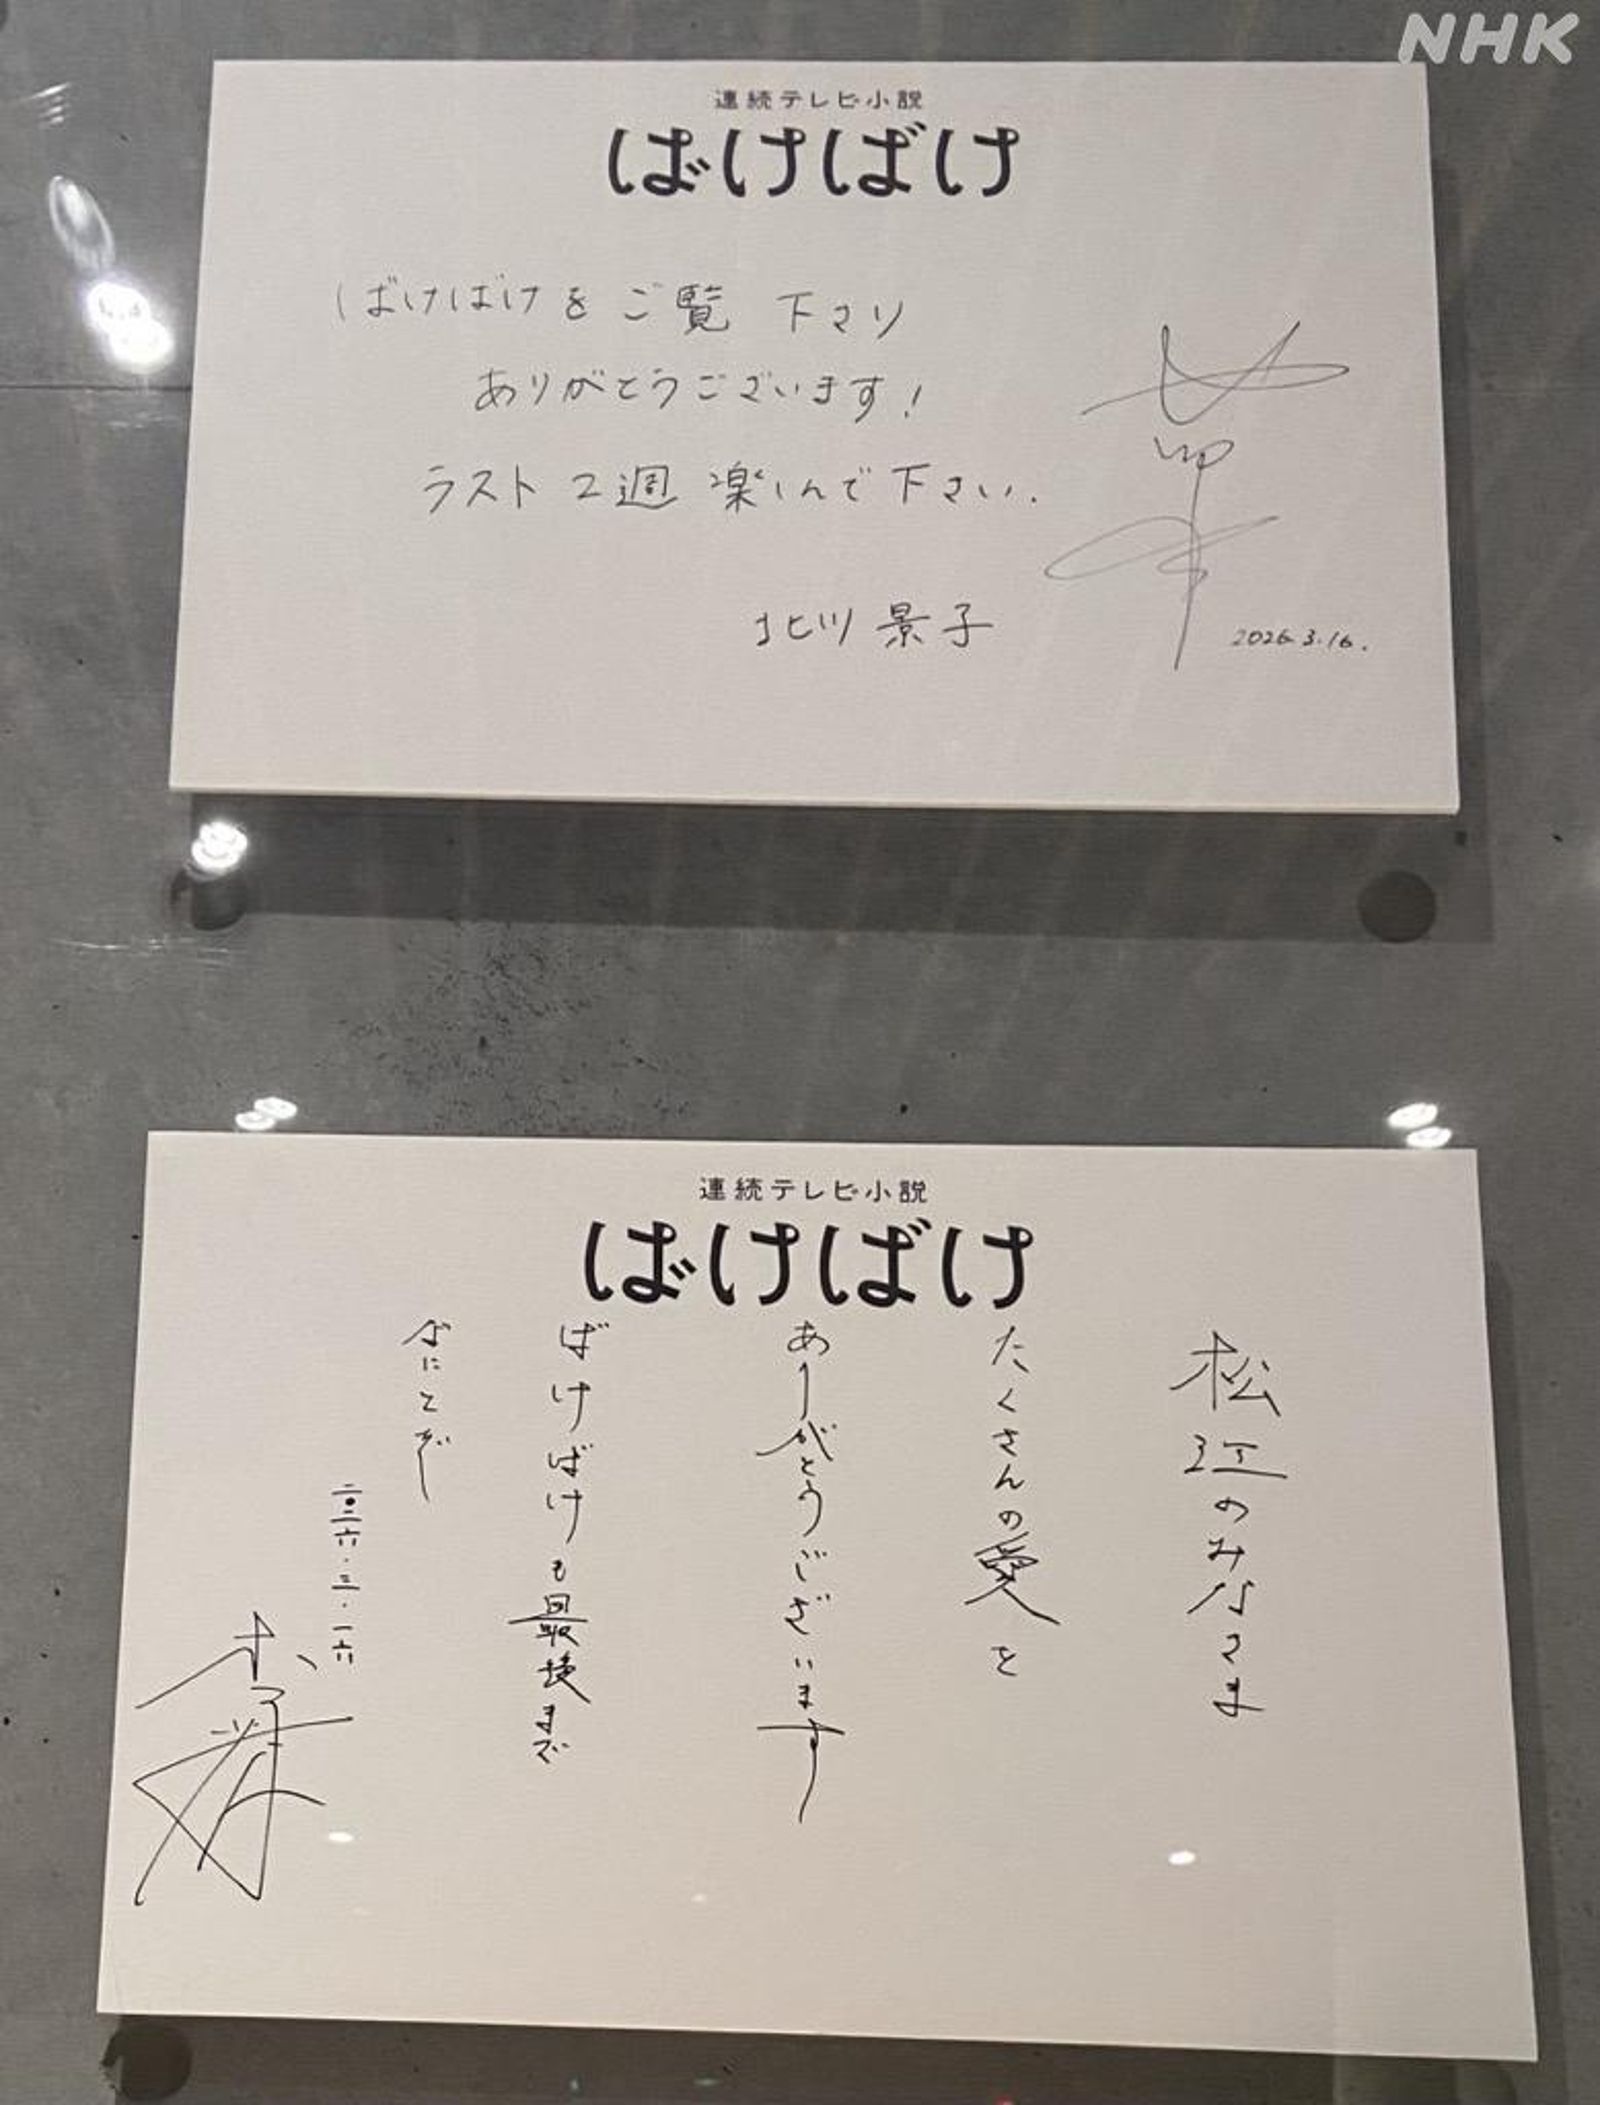 NHK
連続テレビ小説
ばけばけ
ばけばけをご覧下さり
ありがとうございます！
ラスト2週楽しんで下さい.
北川景子
2026.3.16.
連続テレビ小説
ばけばけ
松江のみなさま
たくさんの愛を
ありがとうございます
ばけばけも最後まで
なにとぞ
二〇二六・三・一六